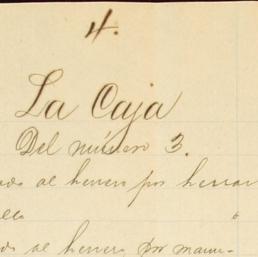 4.
La Caja
Del número 3.
al herrero por herrar
al herrero por